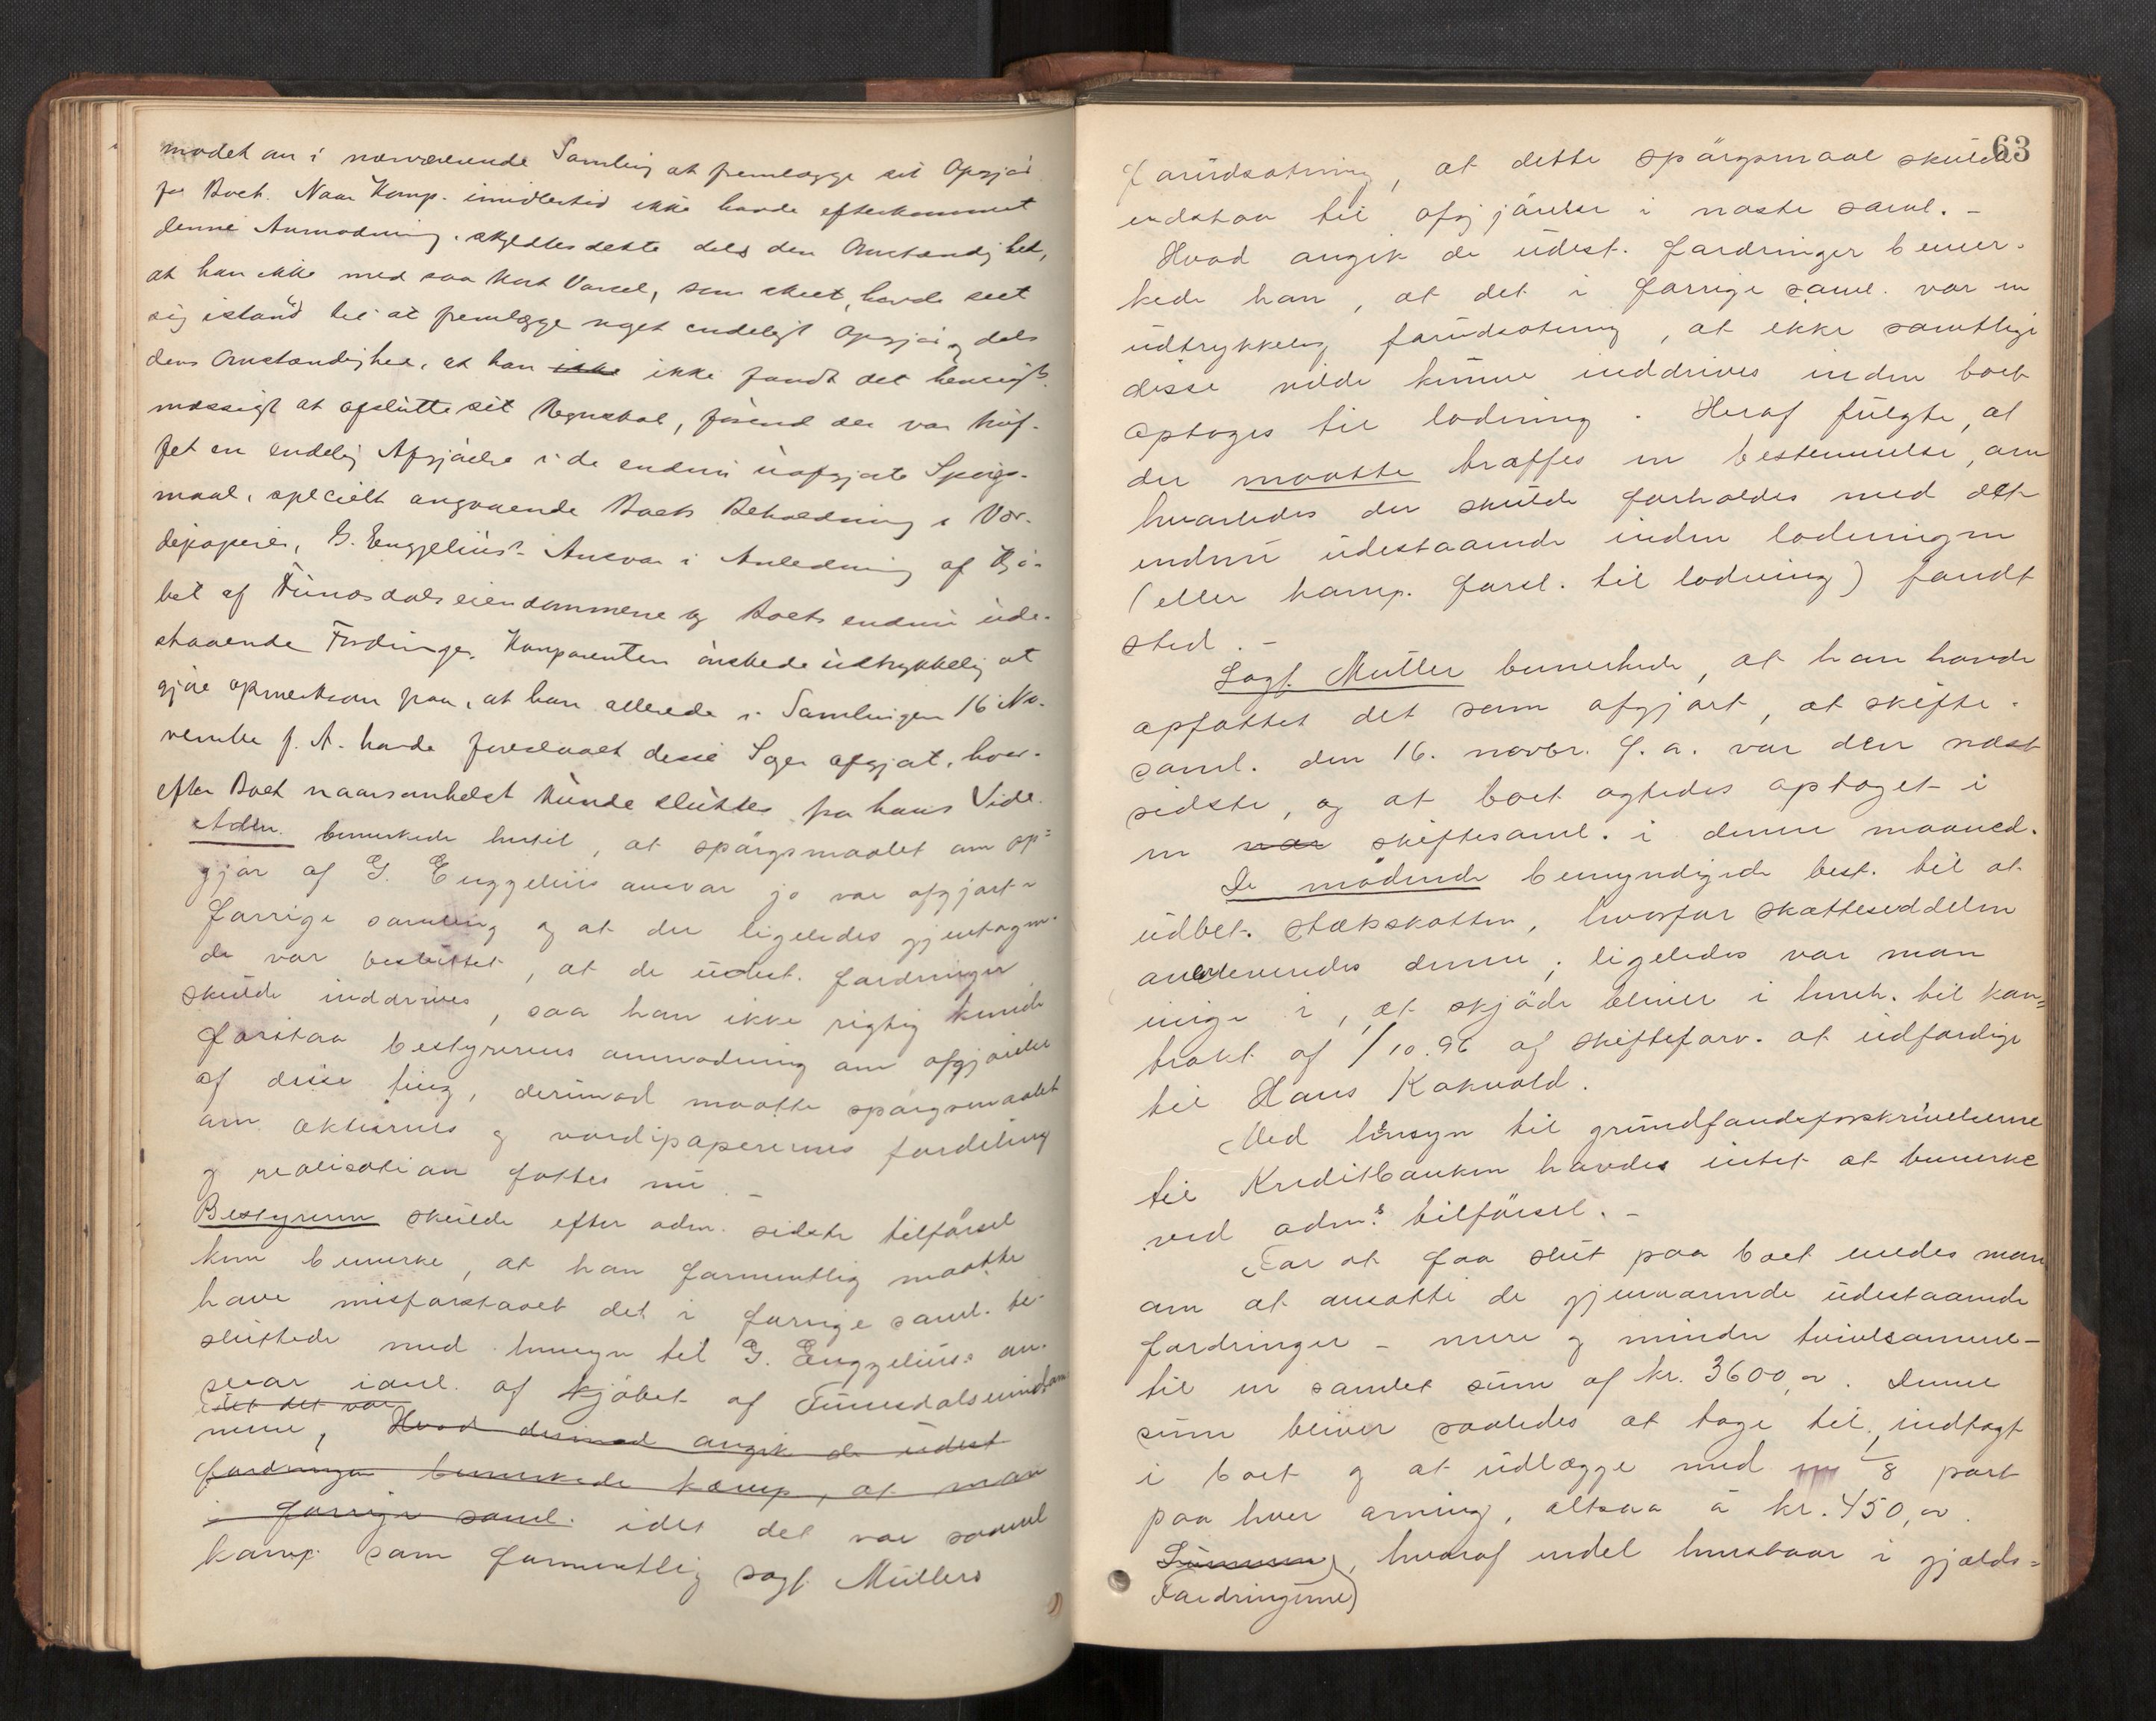 modet am i nærværende Samling at fremlægge sit Opgjør
for Boet. Naar Komp. imidlertid ikke havde efterkommet
denne Anmodning, skyldtes dette dels den Omstændighed,
at han ikke med saa kort Varsel, som skeet, havde seet
sig istand til at fremlægge noget endeligt Opgjør, dels
den Omstændighed, at han ikke ikke fandt det hensigts-
mæssigt at afslutte sit Regnskab, førend der var truf-
fet en endelig Afgjørelse i de endnu uafgjorte Spørgs-
maal, specielt angaaende Boets Beholdning i Vær-
dipapirer, G. Enggeliüs's Ansvar i Anledning af Kjø-
bet af Funæsdalseiendommene og Boets endnu ude-
staaende Fordringer. Komparenten ønskede udtrykkelig at
gjøre opmerksom paa, at han allerede i Samlingen 16 No-
vember f. A. havde foreslaaet disse Sager afgjort, hvor-
efter Boet naarsomhelst kunde sluttes fra hans Side.
Adm. bemerkede hertil, at spørgsmaalet om op=
gjør af G. Enggeliüs ansvar jo var afgjort i
forrige samling og at der ligeledes gjentagen-
de var besluttet, at de udest. fordringer
skulde inddrives, saa han ikke rigtig kunde
forstaa bestyrerens anmodning om afgjørelse
af disse ting, derimod maatte spørgsmaalet
om aktiernes og værdipapirernes fordeling
og realisation fattes nu. –
Bestyreren skulde efter adm. sidste tilførsel
kun bemerke, at han formentlig maatte
have misforstaaet det i forrige saml. be-
sluttede med hensyn til G. Enggeliüs's an-
svar ianl. af kjøbet af Funæsdalseiendom
idet det var
mene, Hvad derimod angik de udest
fordringer bemerkede komp, at man
i forrige saml. idet det var saavel
komp. som formentlig sagf. Müllers
63
forudsætning, at dette spørgsmaal skulde
udstaa til afgjørelse i næste saml. –
Hvad angik de udest. fordringer bemer-
kede han, at det i forrige saml. var en
udtrykkelig forudsætning, at ikke samtlige
disse vilde kunne inddrives inden boet
optoges til lodning. Heraf fulgte, at
der maatte træffes en bestemmelse, om
hvorledes der skulde forholdes med det
endnu udestaaende inden lodningen
(eller komp. forsl. til lodning) fandt
sted. –
Sagf. Müller bemerkede, at han havde
opfattet det som afgjort, at skifte-
saml. den 16. novbr. f. a. var den næst
sidste, og at boet agtedes optaget i
en nær skiftesaml. i denne maaned.
De mødende bemyndigede best. til at
udbet. skatten, hvorfor skattesedelen
anleverendes denne; ligeledes var man
enige i, at skjøde bliver i henh. til kon=
trakt af /10.96 af skifteforv. at udfærdige
til Hans Kokvold.
Med hensyn til grundfondsforskrivelserne
til Kreditbanken havdes intet at bemerke
ved adm.s tilførsel. –
For at faa slut paa boet enedes man
om at ansætte de gjenværende udestaaende
fordringer – mere og mindre tvivlsomme –
til en samlet sum af kr. 3600,00. Denne
sum bliver saaledes at tage til indtægt
i boet og at udlægge med 1/8 part
paa hver arving, altsaa à kr. 450,00.
Summen, hvoraf endel henstaar i gjælds=
Fordringerne)